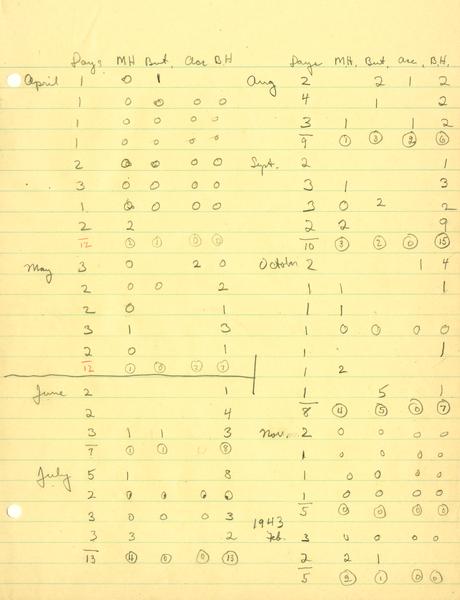 Days MH But. Acc BH
April 1 0 1
1 0 0 0 0
1 0 0 0 0
1 0 0 0 0
2 0 0 0 0
3 0 0 0 0
1 0 0 0 0
2 2
12 2 1 0 0
May 3 0 2 0
2 0 0 2
2 0 1
3 1 3
2 0 1
12 1 0 2 7
June 2 1
2 4
3 1 1 3
7 1 1 8
July 5 1 8
2 0 0 0 0
3 0 0 0 3
3 3 2
13 4 0 0 13
Days MH. But. acc, B.H.
Aug 2 2 1 2
4 1 2
3 1 1 2
9 1 3 2 6
Sept. 2 1
3 1 3
3 0 2 2
2 2 9
10 3 2 0 15
October 2 1 4
1 1 1
1 1
1 0 0 0 0
1 1
1 2
1 5 1
8 4 5 0 7
Nov. 2 0 0 0 0
1 0 0 0 0
1 0 0 0 0
1 0 0 0 0
5 0 0 0 0
1943
Feb. 3 0 0 0 0
2 2 1
5 2 1 0 0